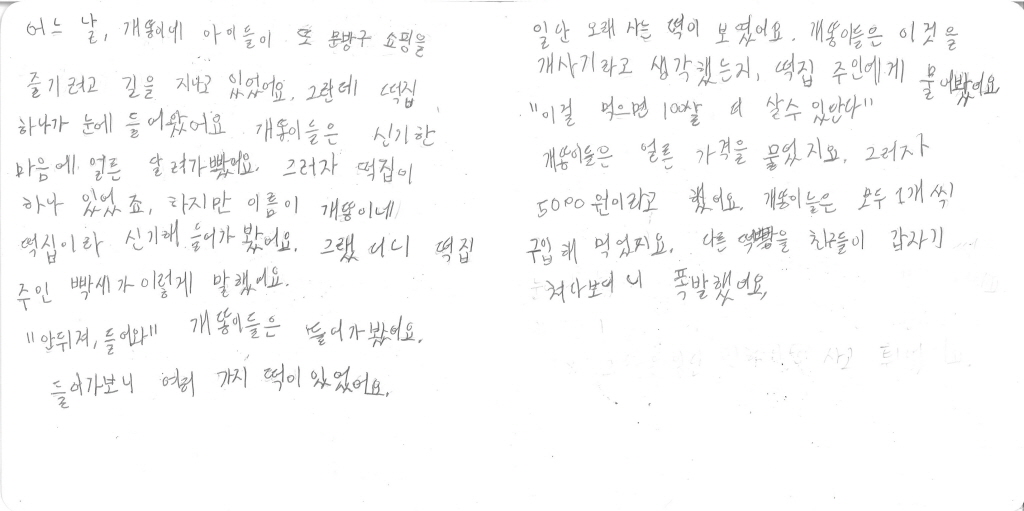 어느 날, 개똥이네 아이들이 또 문방구 쇼핑을
즐기려고 길을 지나고 있었어요. 그런데 떡집
하나가 눈에 들어왔어요 개똥이들은 신기한
마음에 얼른 달려가봤어요. 그러자 떡집이
하나 있었죠, 하지만 이름이 개똥이네
떡집이라 신기해 들어가 봤어요. 그랬더니 떡집
주인 빡세가 이렇게 말했어요.
"안뒤져, 들어와" 개똥이들은 들어가봤어요.
들어가보니 여러 가지 떡이 있었어요.
일단 오래 사는 떡이 보였어요. 개똥이들은 이것을
개사기라고 생각했는지, 떡집 주인에게 물어봤어요
"이걸 먹으면 100살 더 살수 있단다"
개똥이들은 얼른 가격을 물었지요. 그러자
5000원이라고 했어요. 개똥이들은 모두 1개 씩
구입해 먹었지요. 다른 을 친구들이 갑자기
쳐다보더니 폭발했어요,